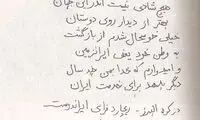 هیچ شادی نیست اندر این جهان
بهتر از دیدار روی دوستان
خیلی خوشحال شدم از بازگشت
به وطن خود یعنی ایران زمین
و امیدوارم که خدا بمن چند سال
دیگر بدهد برای خدمت ایران
در کوه البرز - ریچارد فرای ایراندوست